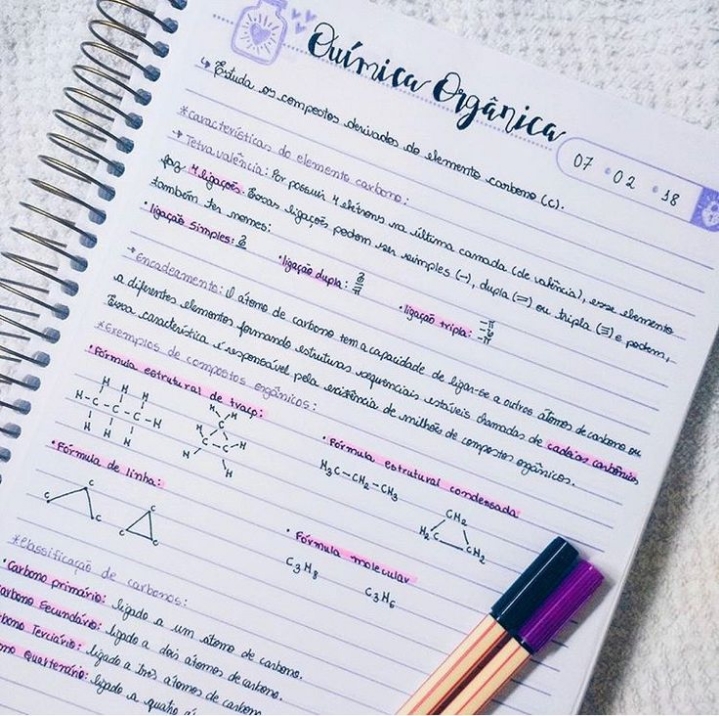 Química Orgânica
07 02 18
↳ Estuda os compostos derivados do elemento carbono (C).
*Características do elemento carbono:
→ Tetravalência: Por possuir 4 elétrons na última camada (de valência), esse elemento
faz 4 ligações. Essas ligações podem ser simples (-), dupla (=) ou tripla (≡) e podem,
também ter nomes:
• ligação simples:
• ligação dupla:
• ligação tripla:
→ Encadeamento: O átomo de carbono tem a capacidade de ligar-se a outros átomos de carbono ou
a diferentes elementos formando estruturas sequenciais estáveis chamadas de cadeias carbônicas
Essa característica é responsável pela existência de milhões de compostos orgânicos.
*Exemplos de compostos orgânicos:
• Fórmula estrutural de traço:
H H H
H-C-C-C-H
H H H
H H
C
H C-C H
H H
• Fórmula estrutural condensada
H₃C-CH₂-CH₃
CH₂
H₂C CH₂
• Fórmula de linha:
C C C
C C C
• Fórmula molecular
C₃H₈ C₃H₆
*Classificação de carbonos:
• Carbono primário: ligado a um átomo de carbono.
arbono Secundário: ligado a dois átomos de carbono.
bono Terciário: ligado a três átomos de carbono
no quaternário: ligado a quatro